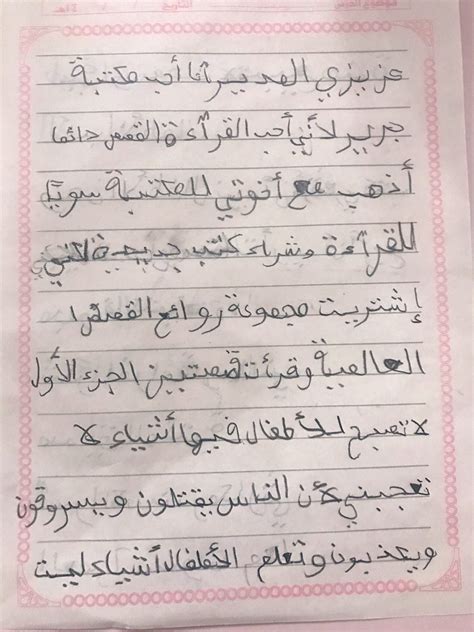 موضوع الدرس التاريخ / / ١٤هـ
عزيزي المدير أنا أحب مكتبة
جرير لأني أحب القرآءة القصص دائما
أذهب مع أخوتي للمكتبة سويا
للقرآءة وشراء كتب جديدة لكني
إشتريت مجموعة روائع القصص
العالمية وقرأت قصتين الجزء الأول
لا تصبح للأطفال فيها أشياء لا
تعجبني لأن الناس يقتلون ويسروقون
ويكذبون وتعلم الأطفال أشياء ليست